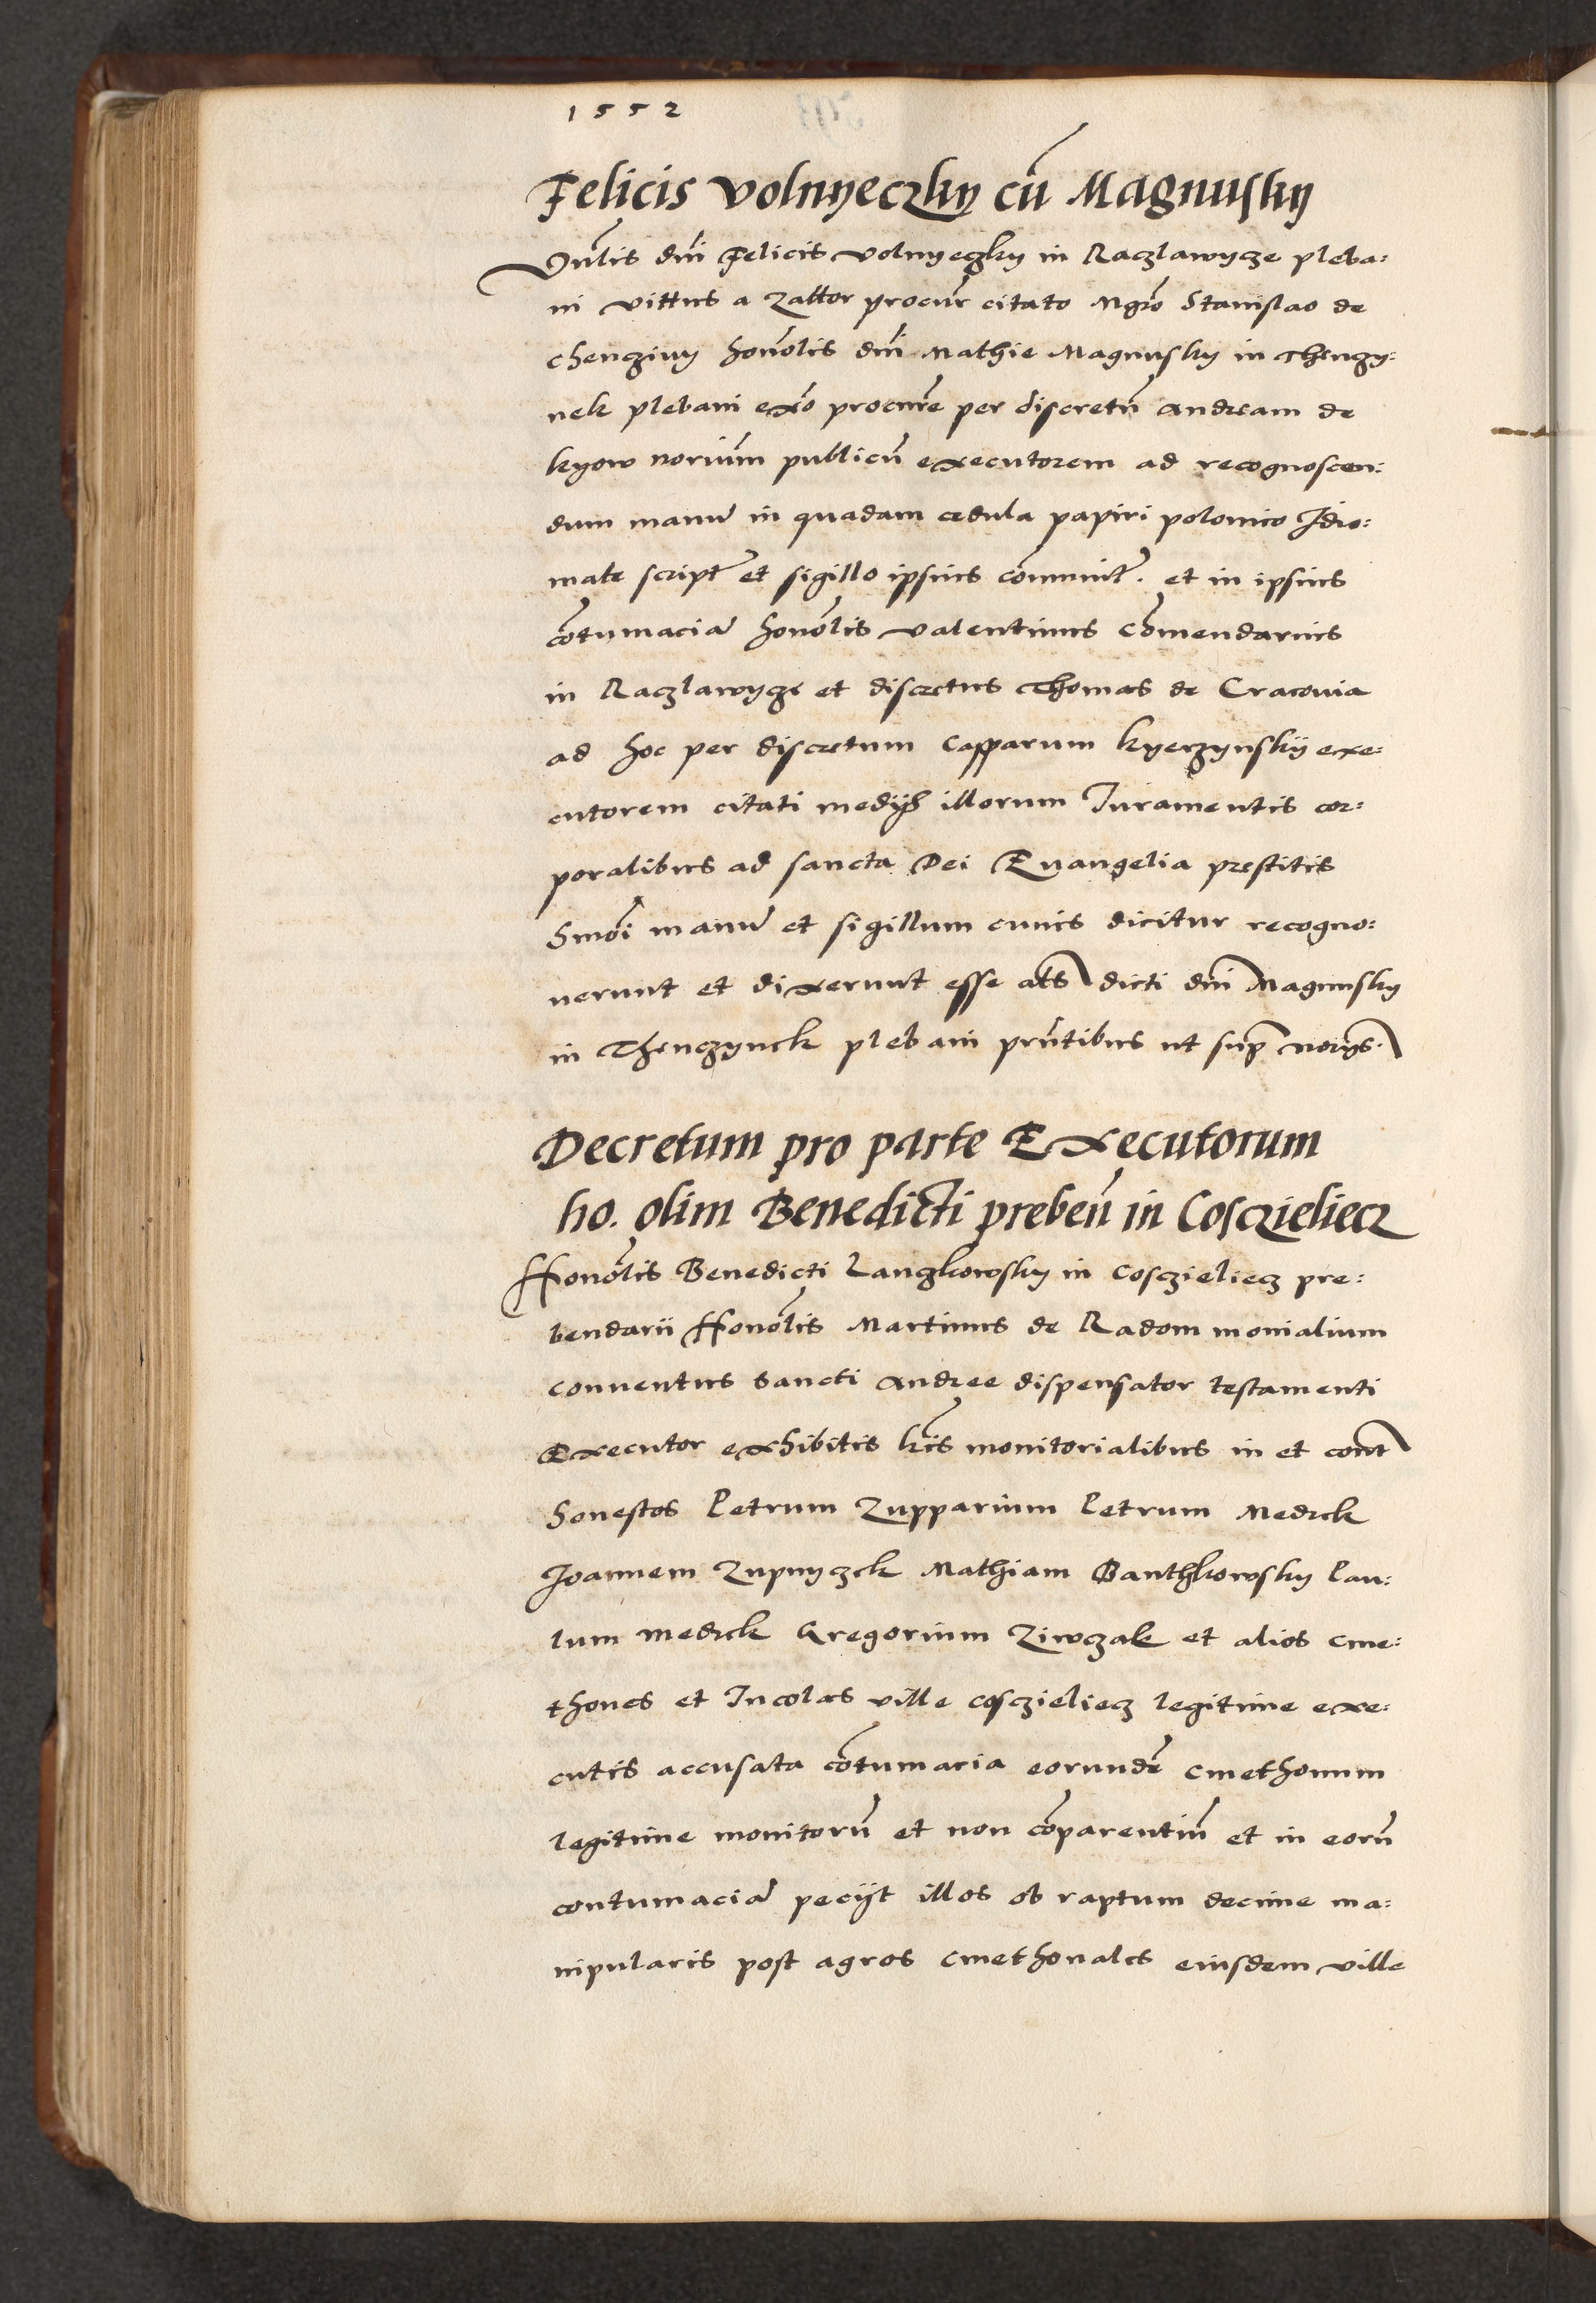 1552
Felicis Volnyeczky cū Magnusky
Vn̄lis dn̄i Felicis Volnyeczky in Raczlawycze pleba:
ni Vittus a Zattor procur̄ citato Mgr̄o Stanislao de
Chencziny honōlis dn̄i Mathie Magnusky in Thenczy:
nek plebani ex̄o procur̄e per discretū Andream de
kyow noriūm publicū executorem ad recognoscen:
dum manū in quadam cedula papiri polonico Idio:
mate script̄ et sigillo ipsius cōmunit̄. et in ipsius
cōtumaciā honōlis Valentinus cōmendarius
in Raczlawycze et discretus Thomas de Cracovia
ad hoc per discretum Casparum kyerzynskÿ exe:
cutorem citati medÿs illorum Juramentis cor:
poralibus ad sancta Dei Euangelia prestitis
manū et sigillum cuius dicitur recogno:
uerunt et dixerunt esse dicti dn̄i Magnusky
in Thenczynek plebani prn̄tibus ut sup̄ norÿs.
Decretum pro parte Executorum
ho. olim Benedicti preben̄ in Cosczieliecz
Honōlis Benedicti Langkowsky in Cosczieliecz pre:
bendarii Honōlis Martinus de Radom monialium
conuentus Sancti Andree dispensator testamenti
Executor exhibitis lr̄is monitorialibus in et cont̄
honestos Petrum Zupparium Petrum Medrek
Joannem Zupnyczek Mathiam Banthkowsky Pau:
lum Medrek Gregorium Ziwczak et alios cme:
thones et Incolas ville Cosczieliecz legitime exe:
cutis accusata cōtumacia eorundē cmethonum
legitime monitorū et non cōparentiū et in eorū
contumaciā pecÿt illos ob raptum decime ma:
nipularis post agros cmethonales eiusdem ville